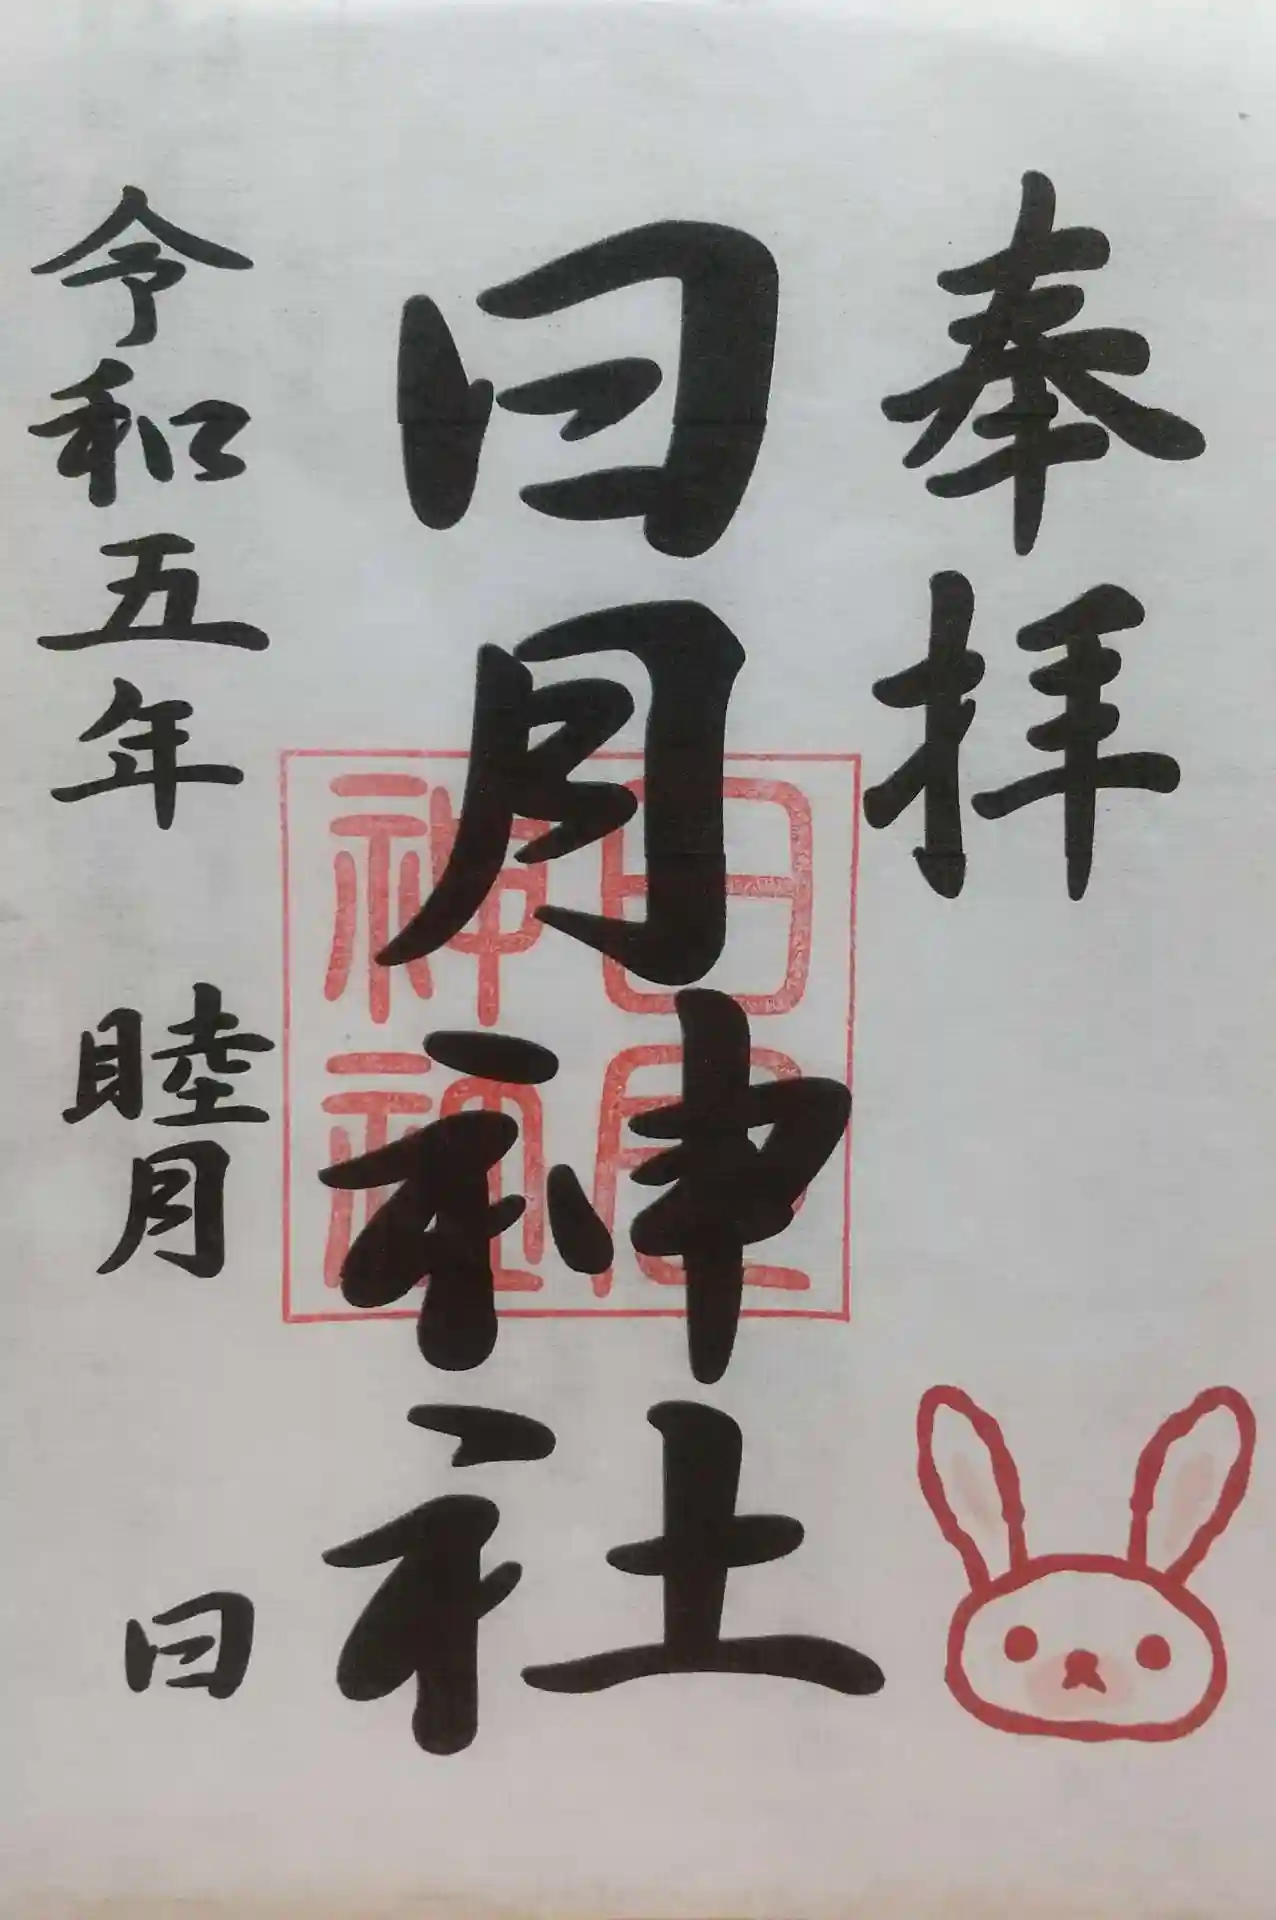 奉拝
日月神社
日月
神社
令和五年 睦月 日